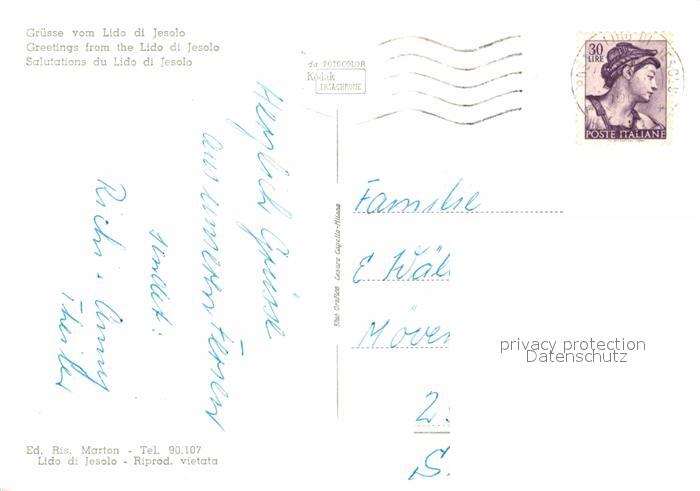 Grüsse vom Lido di Jesolo
Greetings from the Lido di Jesolo
Salutations du Lido di Jesolo
da FOTOCOLOR
Kodak
EKTACHROME
30
LIRE
POSTE ITALIANE
Herzlich Grüsse
aus unseren Ferien
sendet:
Richi + Anny
Theiler
Stab. Grafico Cesare Capello - Milano
Familie
E Wäl
Möven
2
S.
privacy protection
Datenschutz
Ed. Ris. Marton - Tel. 90.107
Lido di Jesolo - Riprod. vietata